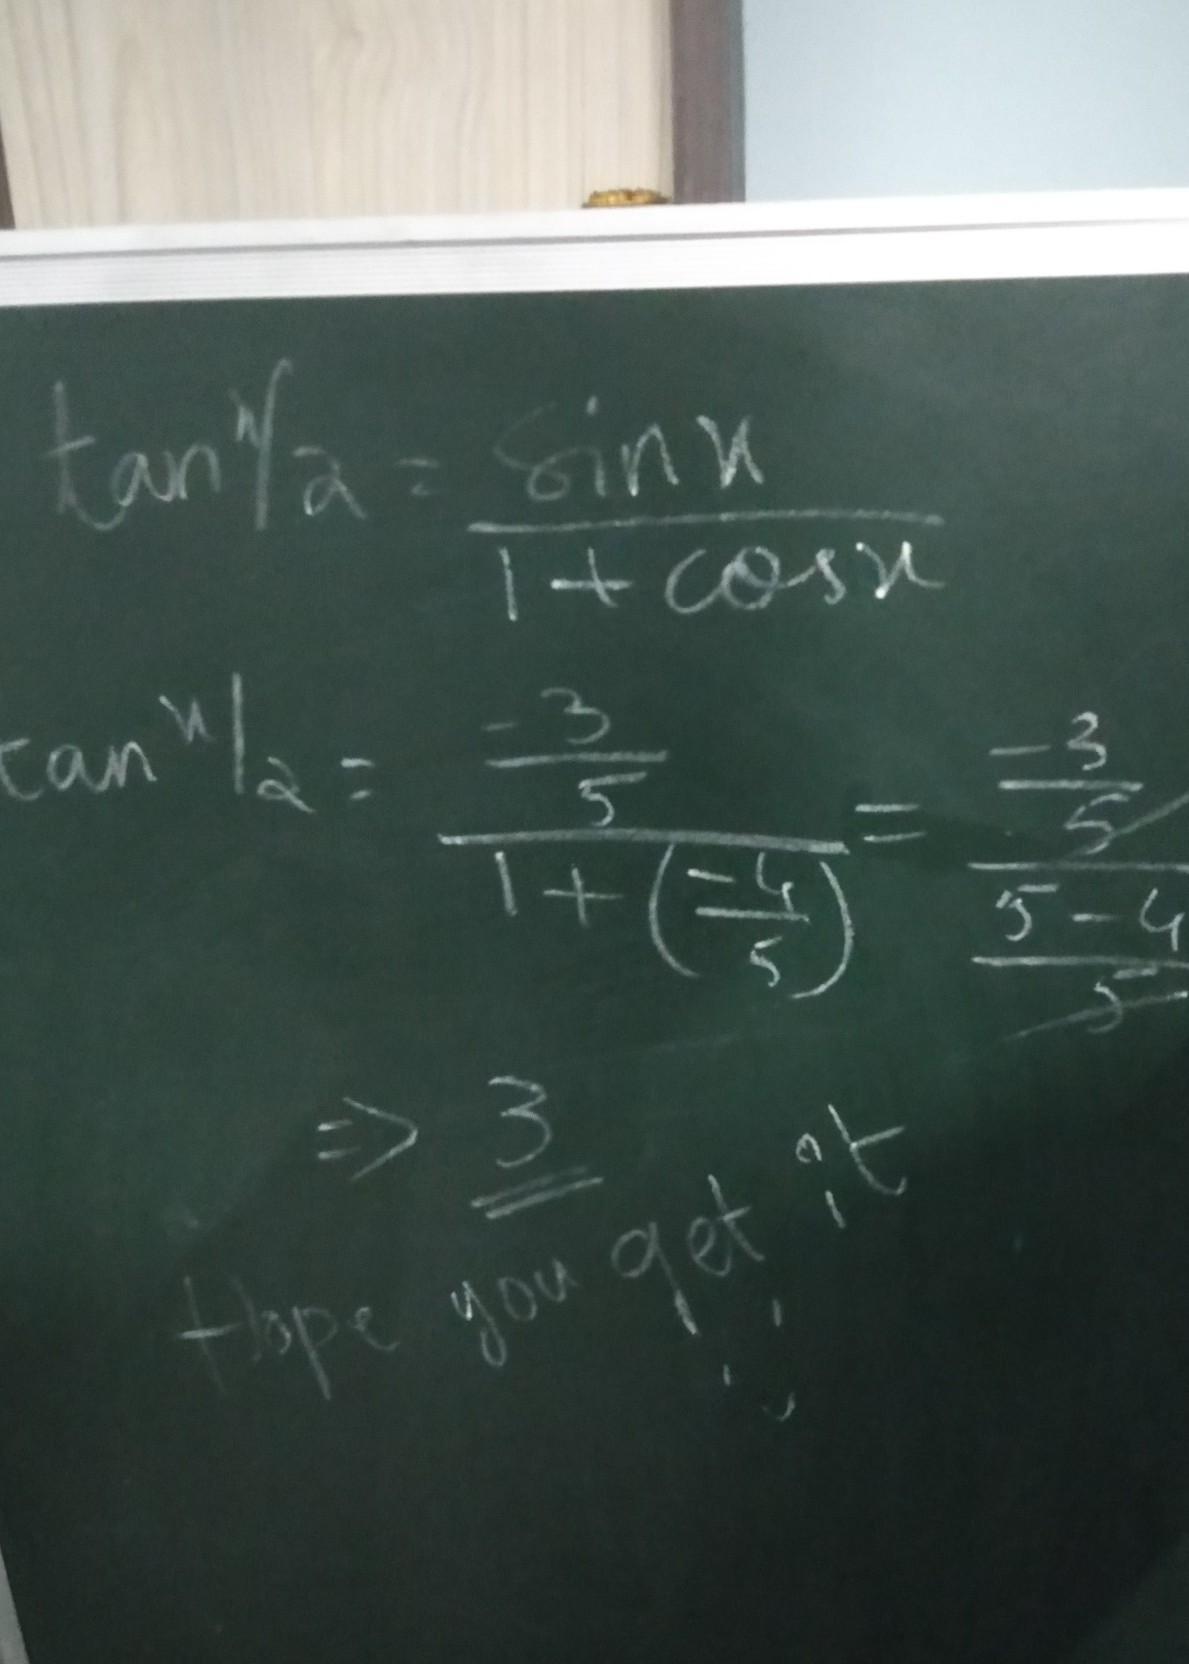 tan x/2 = sin x / 1 + cos x
tan x/2 = -3/5 / 1 + (-4/5) = -3/5 / 5-4/5
=> 3
Hope you get it